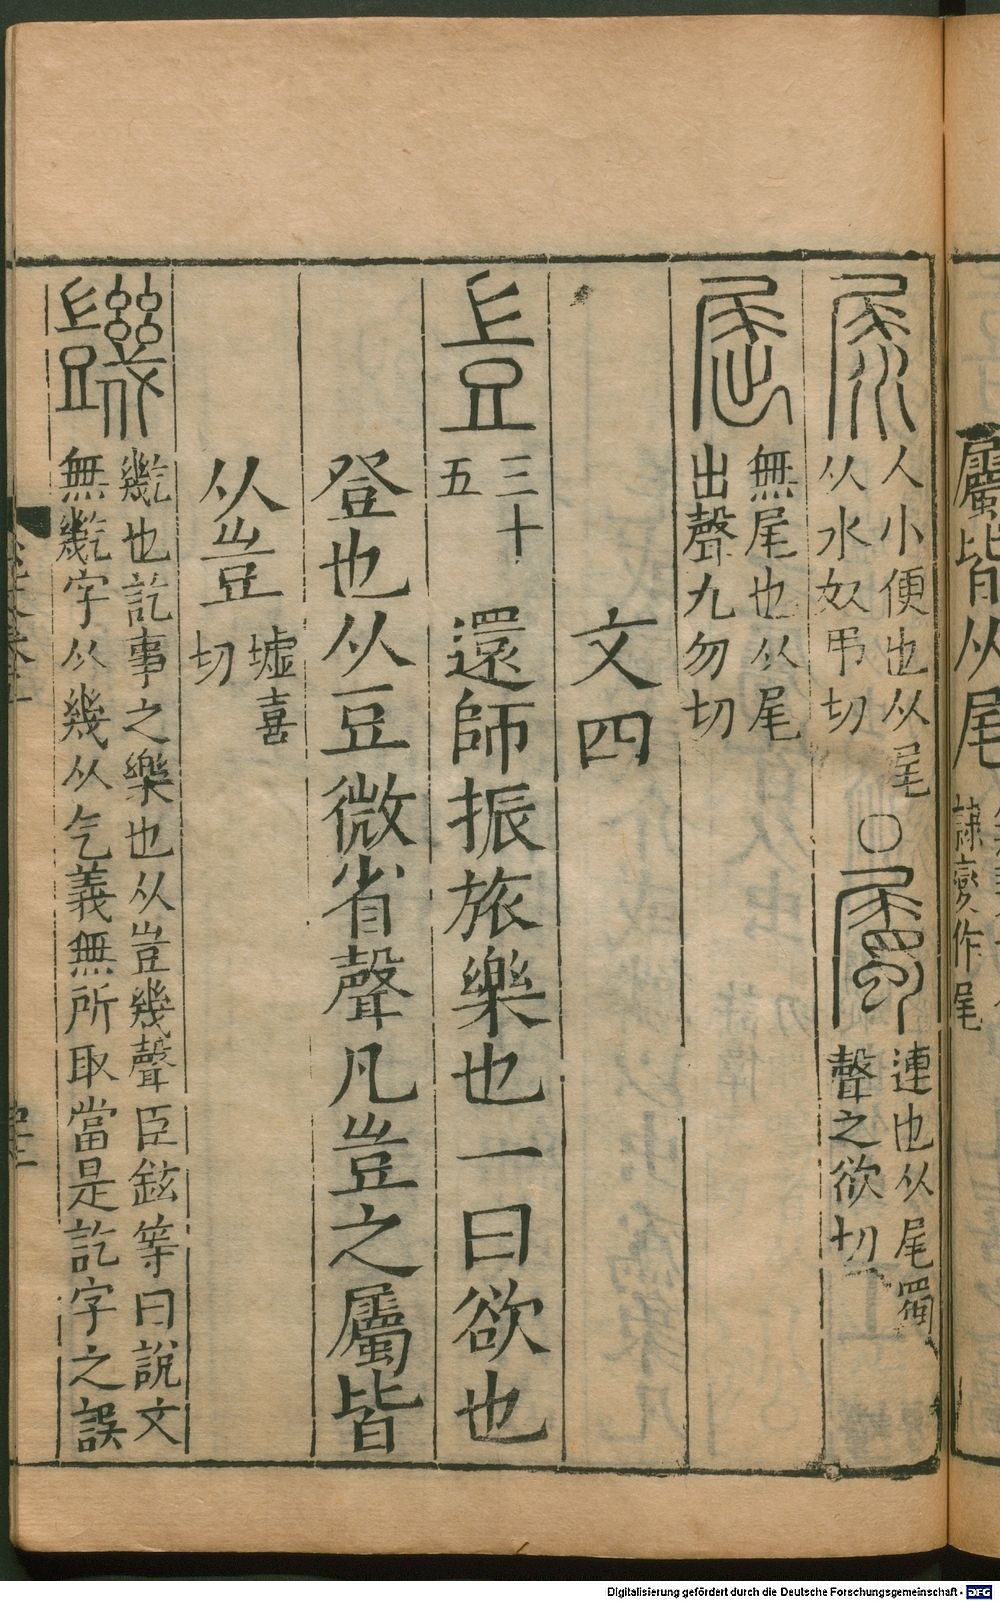 屬皆从尾
隷變作尾
人小便也从尾
从水奴弔切
○
連也从尾蜀
聲之欲切
無尾也从尾
出聲九勿切
文四
豈
三十
五
還師振旅樂也一曰欲也
登也从豆微省聲凡豈之屬皆
从豈
墟喜
切
也訖事之樂也从豈幾聲臣鉉等曰說文
無 字从幾从气義無所取當是訖字之誤
Digitalisierung gefördert durch die Deutsche Forschungsgemeinschaft - DFG